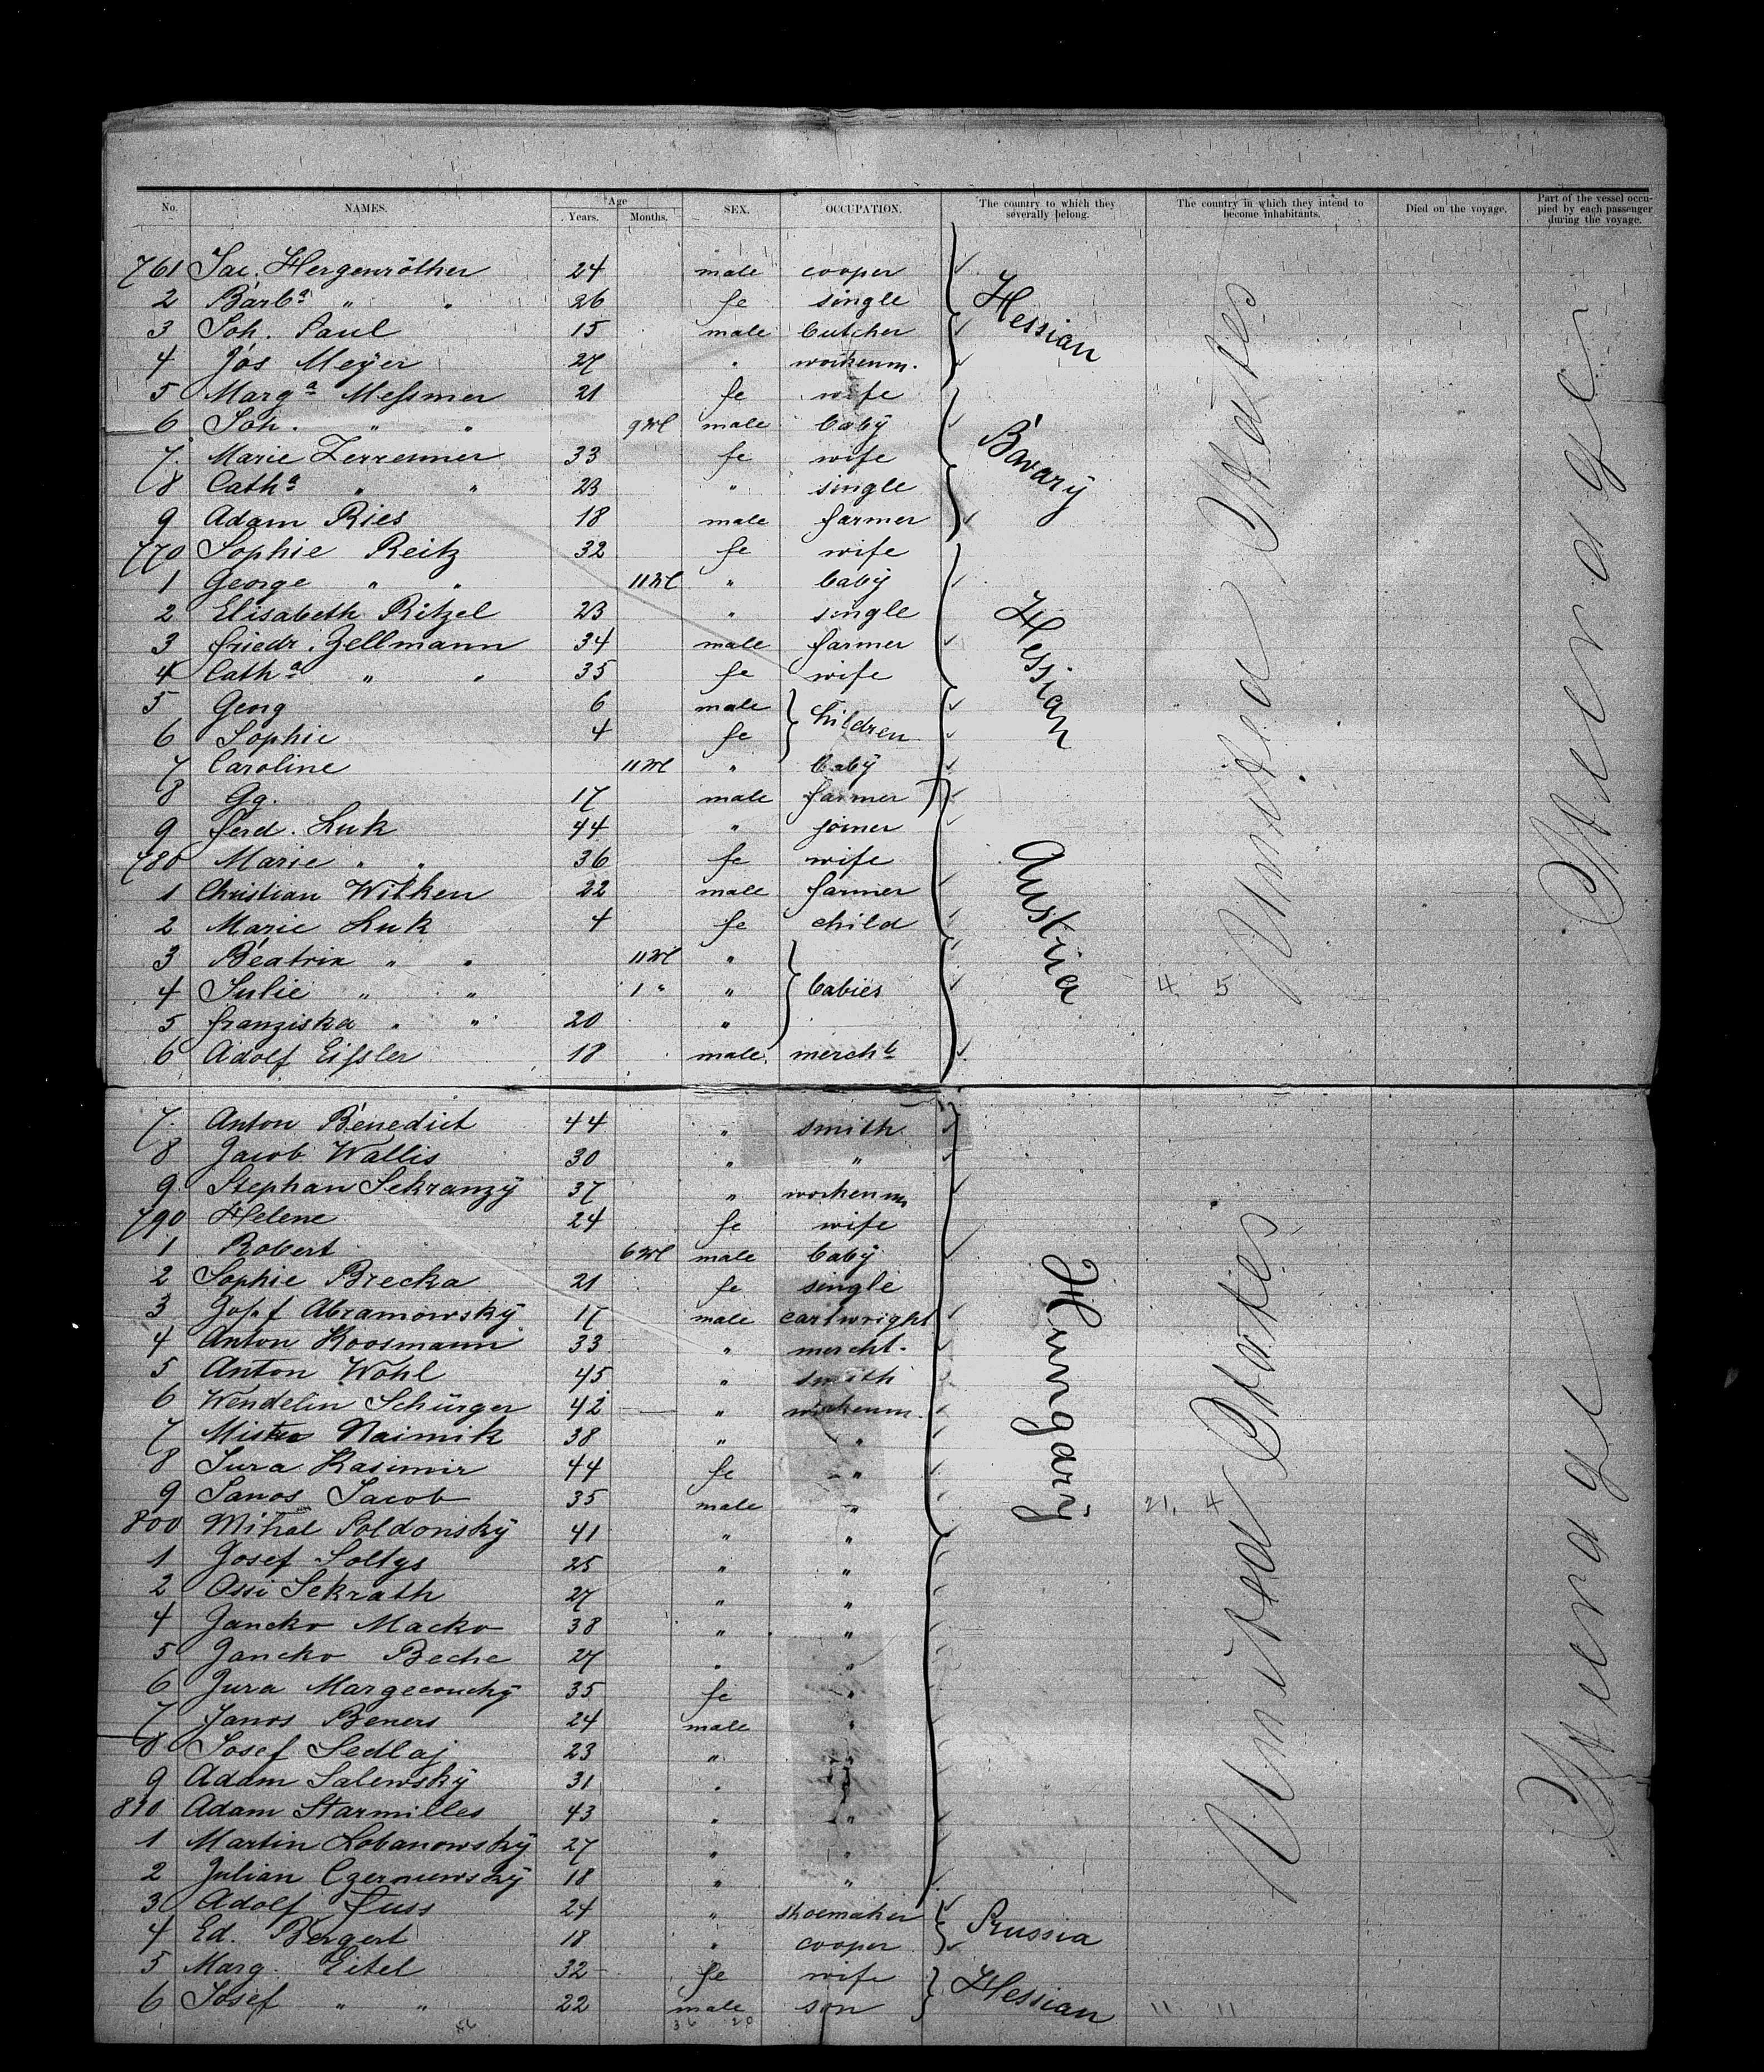 No. NAMES. Age Years. Months. SEX. OCCUPATION. The country to which they severally belong. The country in which they intend to become inhabitants. Died on the voyage. Part of the vessel occupied by each passenger during the voyage.
761 Jac. Hergenröther 24 male cooper
2 Barbª " " 26 fe single
3 Joh. Paul 15 male butcher Hessian
4 Jos Meÿer 27 " workenm.
5 Margª Meſsmer 21 fe wife
6 Joh. " " 9 M male babÿ
7. Marie Zerrenner 33 fe wife Bavarÿ
8 Cathª " " 23 " single
9 Adam Ries 18 male farmer
770 Sophie Reitz 32 fe wife
1 George " " 11 M " babÿ
2 Elisabeth Ritzel 23 " single
3 Friedr. Zellmann 34 male farmer Hessian
4 Cathª " " 35 fe wife
5 Georg 6 male children
6 Sophie 4 fe
7 Caroline 11 M " babÿ
8 Gg. 17 male farmer
9 Ferd. Luk 44 " joiner
780 Marie " " 36 fe wife
1 Christian Wilken 22 male farmer Austria
2 Marie Luk 4 fe child
3 Beatrix " " 11 M "
4 Julie " " 1 " " babies 4 5
5 Franziska " " 20 "
6 Adolf Eiſsler 18 male. mercht
United States
Steerage
7. Anton Benedict 44 " smith
8 Jacob Wallis 30 " "
9 Stephan Sekranzÿ 37 " workenm
790 Helene 24 fe wife
1 Robert 6 M male babÿ
2 Sophie Brecka 21 fe single
3 Joſ.f Abramowskÿ 17 male cartwright
4 Anton Koosmann 33 " mercht.
5 Anton Wohl 45 " smith
6 Wendelin Schürger 42 " workenm.
7 Naimik 38 " "
8 Jura Kasimir 44 fe "
9 Janos Jacob 35 male " Hungarÿ 21. 4
800 Mihal Poldonskÿ 41 " "
1 Josef Soltys 25 " "
2 Ossi Sekrath 27 " "
4 Jancko Macko 38 " "
5 Jancko Beche 27 " "
6 Jura 35 fe "
7 Janos Beners 24 male "
8 Josef Sedlaj 23 " "
9 Adam Salewskÿ 31 " "
810 Adam Starmilles 43 " "
1 Martin Lobanowskÿ 27 " "
2 Julian 18 " "
3 Adolf Fuss 24 " shoemaker Prussia
4 Ed. Bergert 18 " cooper
5 Marg. Eitel 32 fe wife Hessian
6 Josef " " 22 male son 11 11
36 20
United States
Steerage